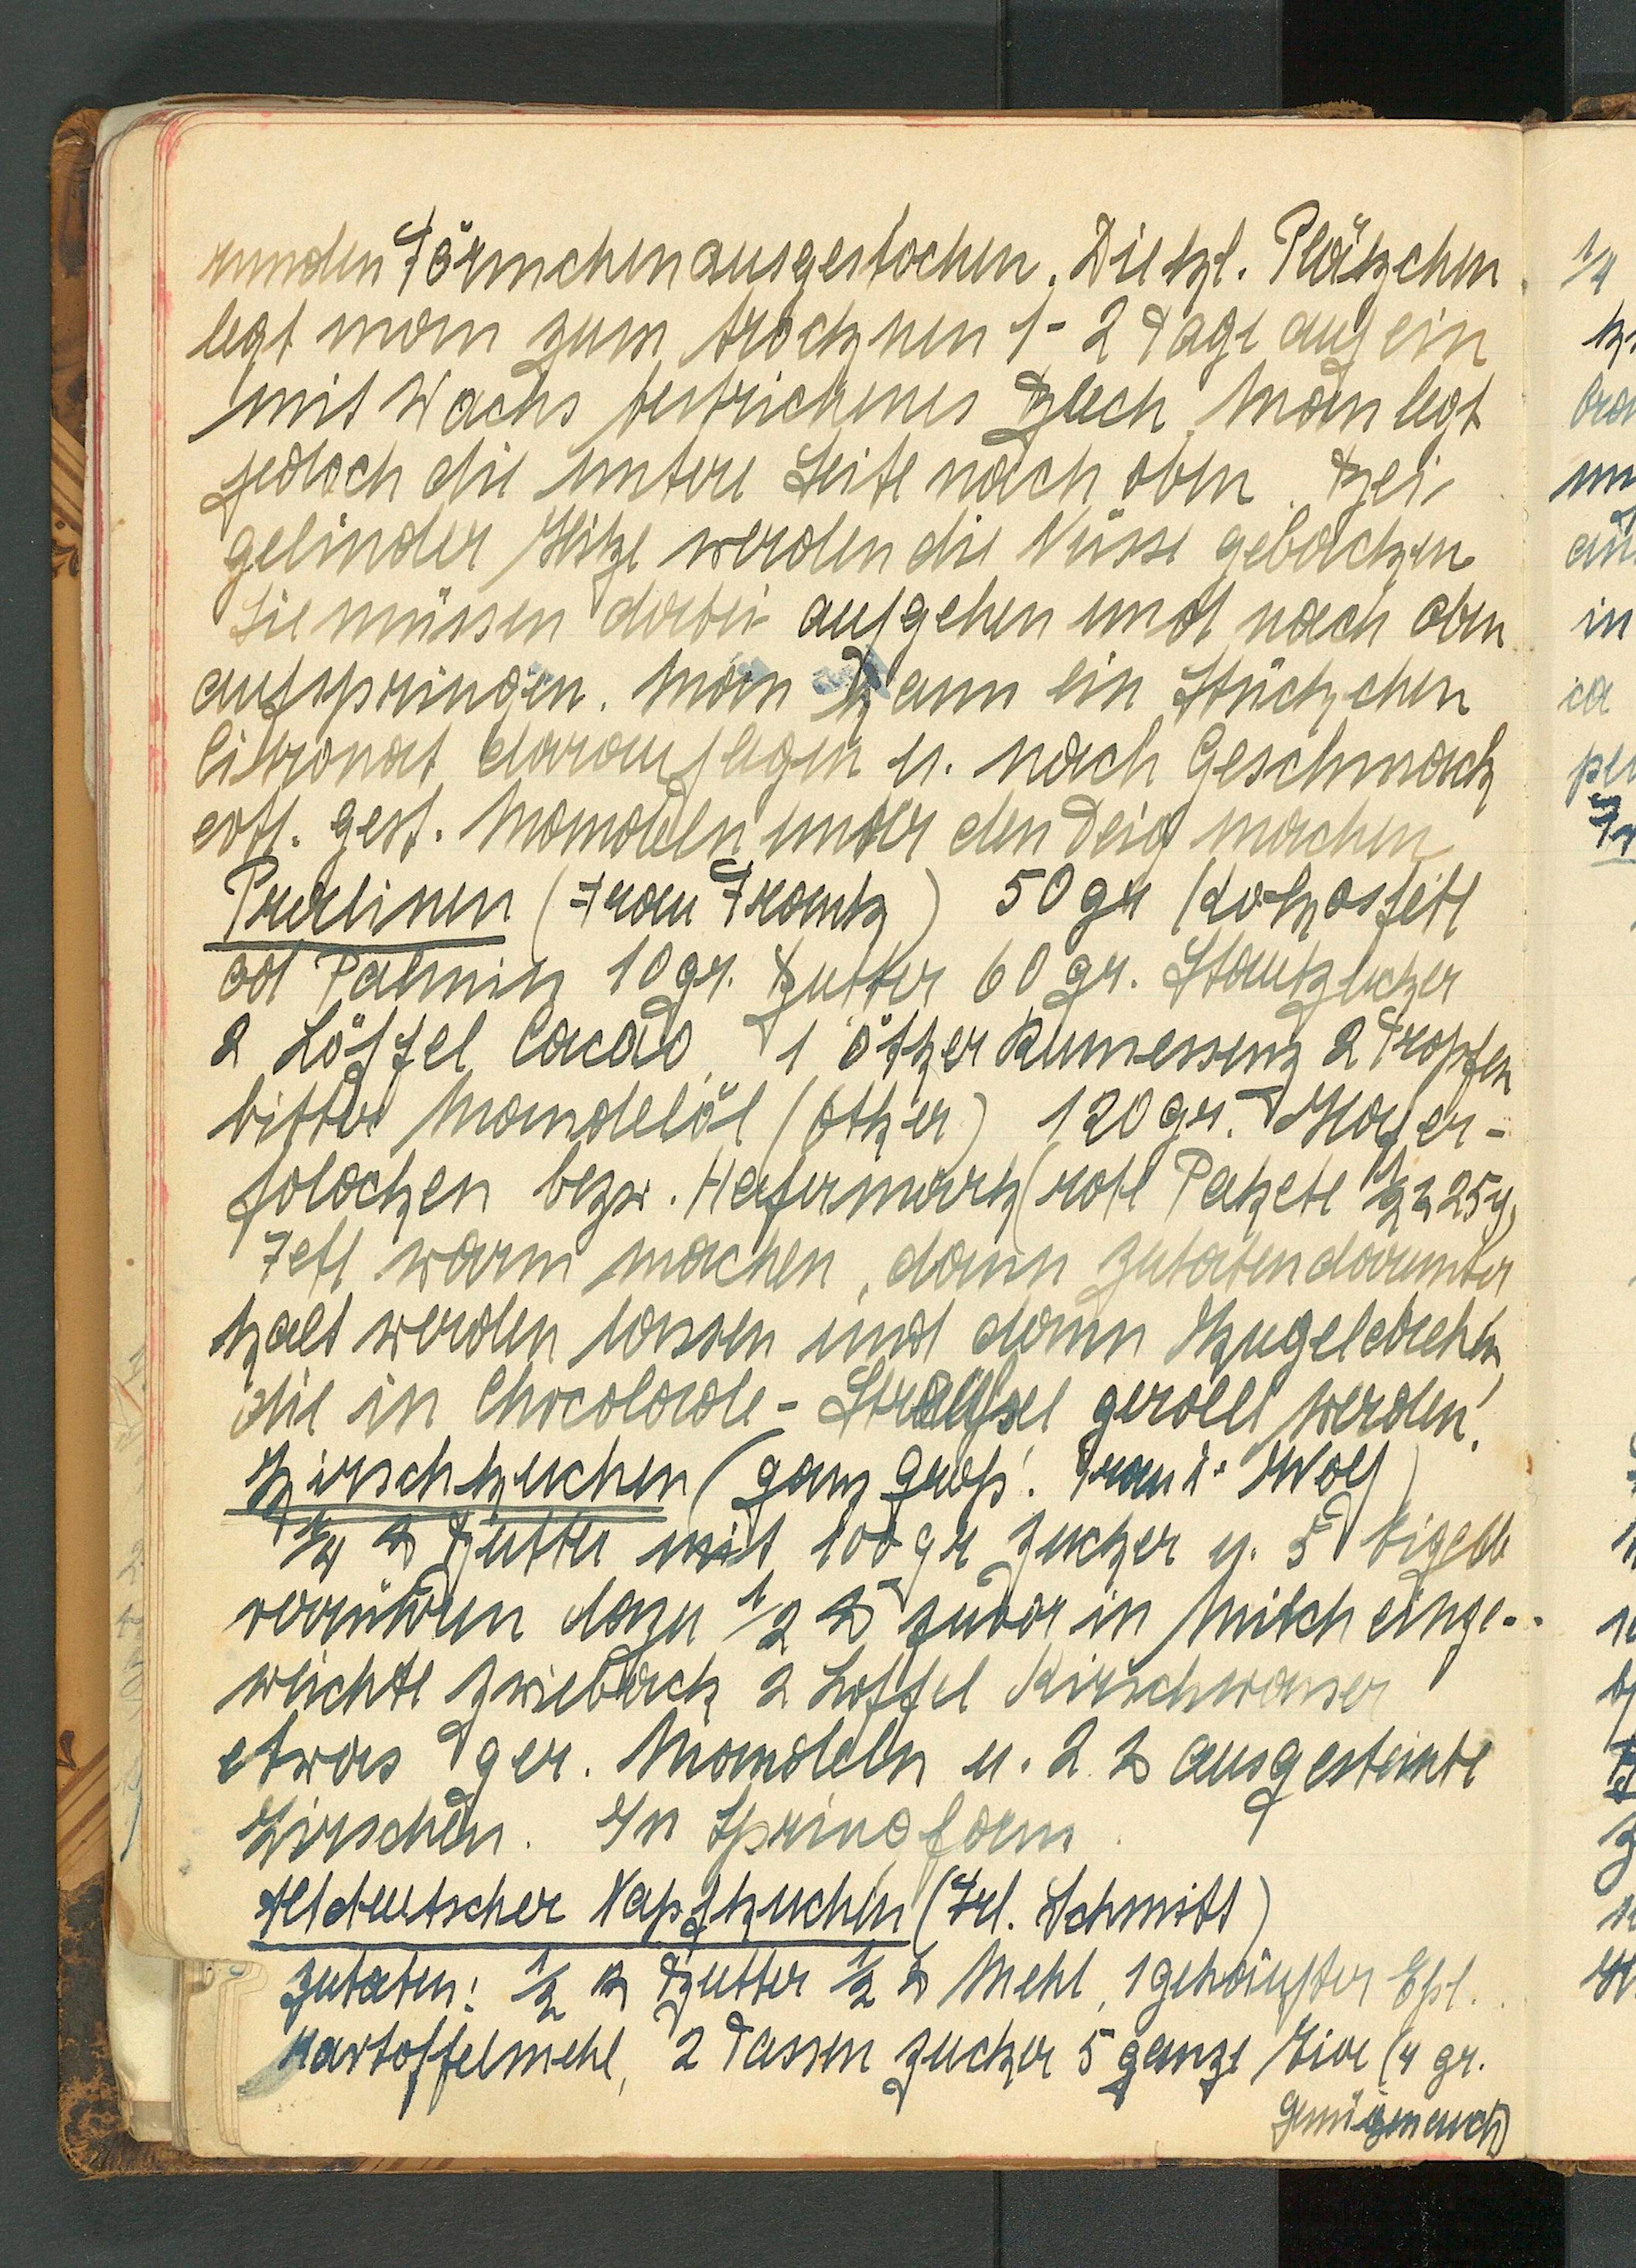 runden Förmchen ausgestochen. Die kl. Plätzchen
legt man zum trocknen 1-2 Tage auf ein
mit Wachs bestrichenes Blech. Man legt
jedoch die untere Seite nach oben. Bei
gelinder Hitze werden die Nüsse gebacken
Sie müssen dabei aufgehen und nach oben
aufspringen. Man kann ein Stückchen
Citronat darauf legen u. nach Geschmack
evtl. gest. Mandeln unter den Teig machen
Pralinen (Frau Frantz) 50 gr Kokosfett
od Palmin 10 gr. Butter 60 gr. Staubzucker
2 Löffel Cacao, 1 ötker Rumessenz 2 Tropfen
bitter Mandelöl (ötker) 120 gr. Hafer-
flocken bezw. Hafermark (rote Pakete 1/2 ℔ 25 g)
Fett warm machen, dann zutaten darunter
kalt werden lassen und dann Kugel drehen,
die in Chocolade-Streusel gerollt werden!
Kirschkuchen (ganz groß! Wolf)
1/4 ℔ Butter mit 100 gr Zucker u. 5 Eigelb
verrühren dazu 1/2 ℔ zuvor in Milch einge-
weichte Zwieback 2 Löffel Kirschwasser
etwas ger. Mandeln u. 2 ℔ ausgesteinte
Kirschen. In Springform
Altdeutscher Napfkuchen (Frl. Schmitt)
Zutaten: 1/2 ℔ Butter 1/2 ℔ Mehl, 1 gehäufter Eßl.
Kartoffelmehl, 2 Tassen Zucker 5 ganze Eier (4 gr.
genügen auch)